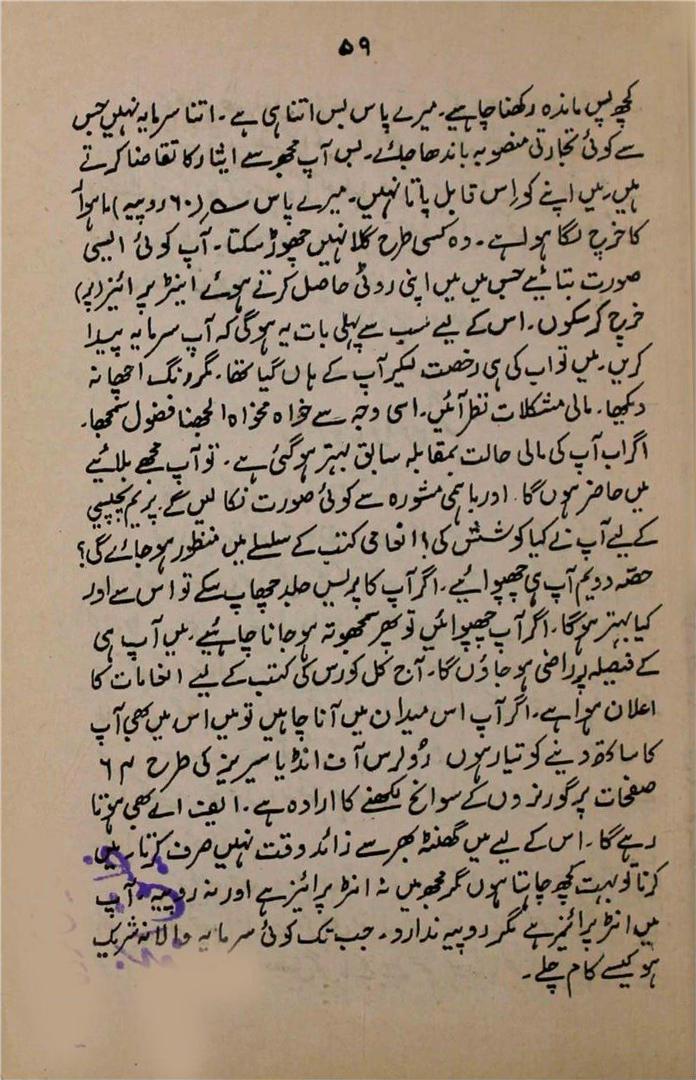 ۵۹
کچھ پس ماندہ رکھنا چاہیے۔ میرے پاس بس اتنا ہی ہے۔ اتنا سرمایہ نہیں جس
سے کوئی تجارتی منصوبہ باندھا جائے۔ بس آپ مجھ سے ایثار کا تقاضا کرتے
ہیں۔ میں اپنے کو اِس قابل پاتا نہیں۔ میرے پاس (۶۰ روپیہ) ماہوار
کا خرچ لگا ہوا ہے۔ وہ کسی طرح گلا نہیں چھوڑ سکتا۔ آپ کوئی ایسی
صورت بتائیے جس میں میں اپنی روٹی حاصل کرتے ہوئے اینٹر پرائیز (پر)
خرچ کر سکوں۔ اس کے لیے سب سے پہلی بات یہ ہوگی کہ آپ سرمایہ پیدا
کریں۔ میں تو اب کی ہی رخصت لیکر آپ کے ہاں گیا تھا۔ مگر رنگ اچھا نہ
دیکھا۔ مالی مشکلات نظر آئیں۔ اسی وجہ سے خواہ مخواہ الجھنا فضول سمجھا۔
اگر اب آپ کی مالی حالت بمقابلہ سابق بہتر ہو گئی ہے۔ تو آپ مجھے بلائیے
میں حاضر ہوں گا۔ اور باہمی مشورہ سے کوئی صورت نکالیں گے۔ پریم پچیسی
کے لیے آپ نے کیا کوشش کی؟ انعامی کتب کے سلسلے میں منظور ہو جائے گی؟
حصّہ دویم آپ ہی چھپوائیے۔ اگر آپ کا پریس جلد چھاپ سکے تو اس سے اور
کیا بہتر ہوگا۔ اگر آپ چھپوائیں تو پھر سمجھوتہ ہو جانا چاہئیے۔ میں آپ ہی
کے فیصلہ پر راضی ہو جاؤں گا۔ آج کل کورس کی کتب کے لیے انعامات کا
اعلان ہوا ہے۔ اگر آپ اس میدان میں آنا چاہیں تو میں اس میں بھی آپ
کا ساتھ دینے کو تیار ہوں رُولرس آف انڈیا سیریز کی طرح ۶۴
صفحات پر گورنروں کے سوانح لکھنے کا ارادہ ہے۔ ایف اے بھی ہوتا
رہے گا۔ اس کے لیے میں گھنٹہ بھر سے زائد وقت نہیں صرف کرتا۔ میں
کرنا تو بہت کچھ چاہتا ہوں مگر مجھ میں نہ انٹر پرائیز ہے اور نہ روپیہ۔ آپ
میں انٹر پرائیز ہے مگر روپیہ ندارد۔ جب تک کوئی سرمایہ والا نہ شریک
ہو کیسے کام چلے۔